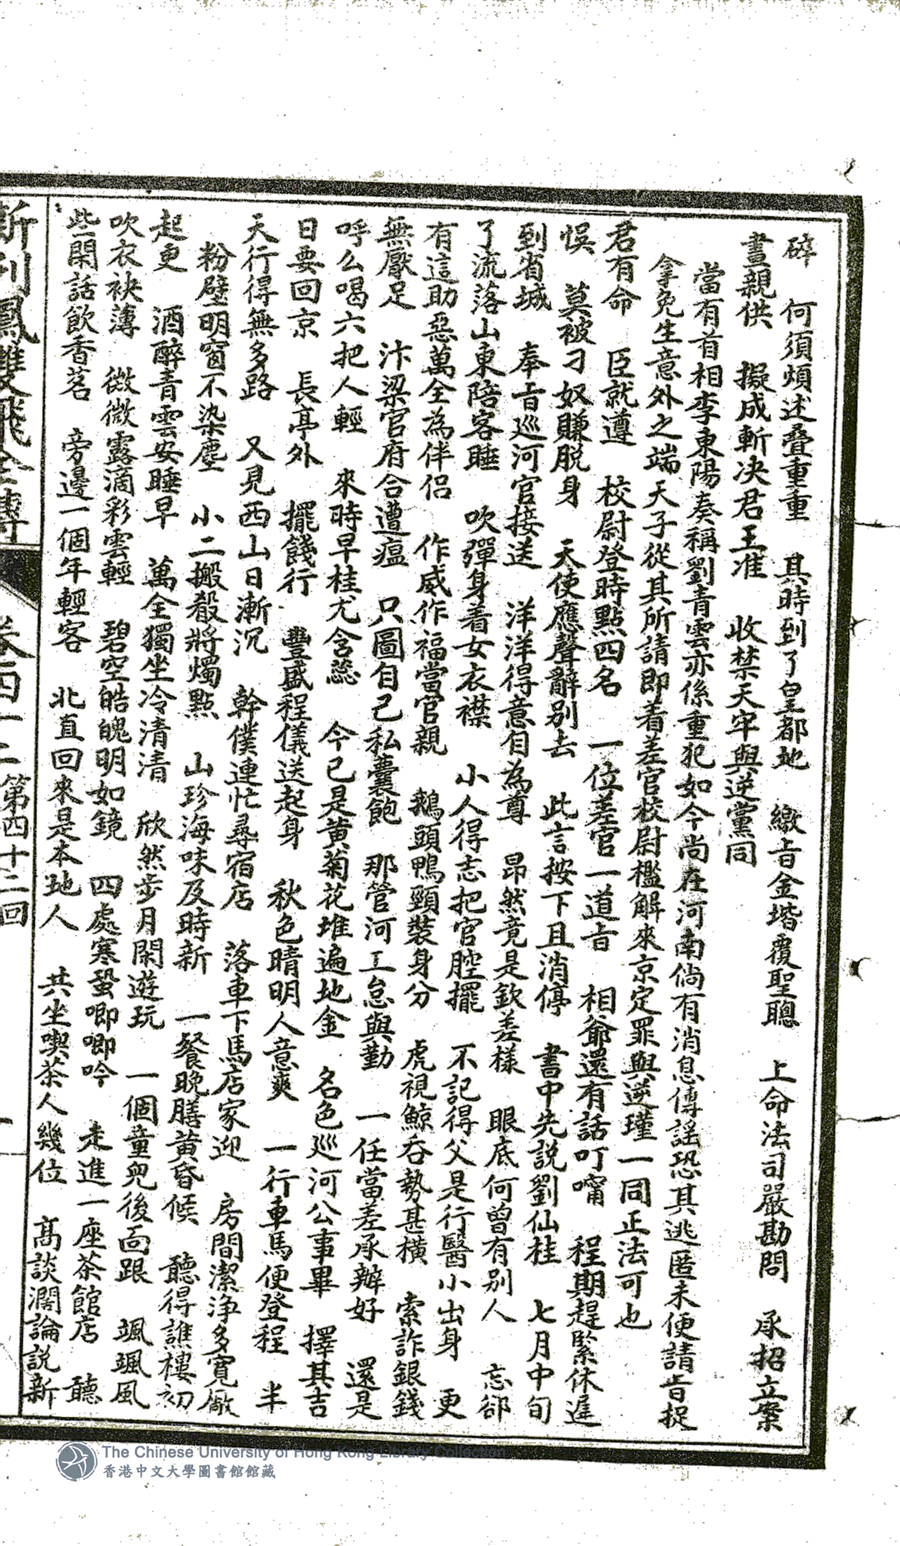 碎　何須煩述疊重重　其時到了皇都地　繳旨金堦覆聖聰　上命法司嚴勘問　承招立案
畫親供　擬成斬决君王准　收禁天牢與逆黨同
當有首相李東陽奏稱劉青雲亦係重犯如今尚在河南倘有消息傳謠恐其逃匿未便請旨捉
拿免生意外之端天子從其所請即着差官校尉檻解來京定罪與逆瑾一同正法可也
君有命　臣就遵　校尉登時點四名　一位差官一道旨　相爺還有話叮嚀　程期趕緊休遲
悞　莫被刁奴賺脫身　天使應聲辭别去　此言按下且消停　書中先說劉仙桂　七月中旬
到省城　奉旨巡河官接送　洋洋得意自為尊　昂然竟是欽差樣　眼底何曾有别人　忘郤
了流落山東陪客睡　吹彈身着女衣襟　小人得志把官腔擺　不記得父是行醫小出身　更
有這助惡萬全為伴侶　作威作福當官親　鵝頭鴨頸裝身分　虎視鯨吞勢甚橫　索詐銀錢
無厭足　汴梁官府合遭瘟　只圖自己私囊飽　那管河工怠與勤　一任當差承辦好　還是
呼么喝六把人輕　來時早桂尤含蕊　今已是黄菊花堆遍地金　名色巡河公事畢　擇其吉
日要回京　長亭外　擺餞行　豐盛程儀送起身　秋色晴明人意爽　一行車馬便登程　半
天行得無多路　又見西山日漸沉　幹僕連忙尋宿店　落車下馬店家迎　房間潔淨多寬厰
粉壁明窗不染塵　小二搬殽將燭點　山珍海味及時新　一餐晚膳黄昏候　聽得譙樓初
起更　酒醉青雲安睡早　萬全獨坐冷清清　欣然步月閑遊玩　一個童兒後面跟　颯颯風
吹衣袂薄　微微露滴彩雲輕　碧空皓魄明如鏡　四處寒蛩唧唧吟　走進一座茶館店　聽
些閑話飲香茗　旁邊一個年輕客　北直回來是本地人　共坐喫茶人幾位　高談濶論説新
新刋鳳雙飛全傳　卷四十二　第四十二回
The Chinese University of Hong Kong Library Collection
香港中文大學圖書館館藏